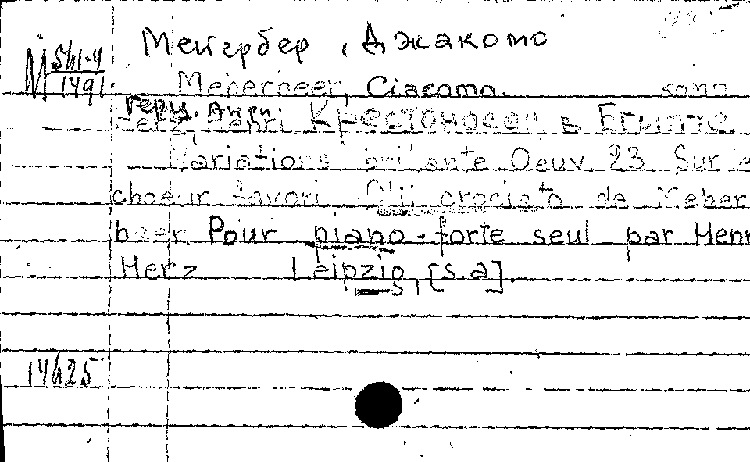 Мейербер, Джакомо
М 561-4
1491
Meyerbeer, Giacomo.
Герц, Анри.
Herz, Henri Крестоносец в Египте
Variations brillante Oeuv. 23 Sur
choeur favori crociato de Meyer
beer Pour piano-forte seul par Henri
Herz Leipzig, [s.a]
14625